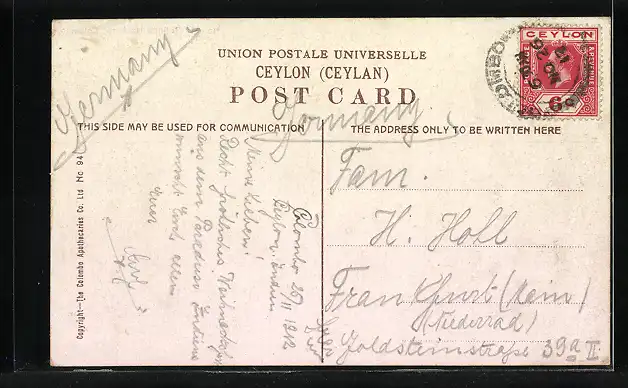 UNION POSTALE UNIVERSELLE
CEYLON (CEYLAN)
POST CARD
Germany
Germany
THIS SIDE MAY BE USED FOR COMMUNICATION
THE ADDRESS ONLY TO BE WRITTEN HERE
CEYLON
POSTAGE
& REVENUE
6
COLOMBO
Fam.
H. Holl
Frankfurt (Main)
(Niederrad)
Goldsteinstraße 39a II
Colombo 26/11 1912
Ceylon, Indien
Meine Lieben!
Recht fröhliches Weihnachten
aus dem Paradies Indiens
wünscht Euch allen
Euer
Copyright—The Colombo Apothecaries Co. Ltd No 94